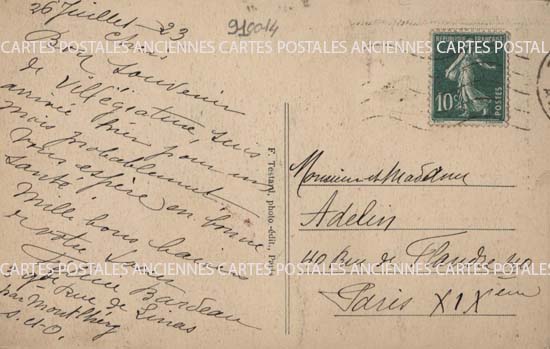 26 Juillet - 23
919014
Chers,
Bon souvenir
de villégiature, suis
arrivée hier pour un
mois probablement
vous espère en bonne
santé.
Mille bons baisers
de votre
Bardeau
Rue de Linas
par Montlhéry
S.-&-O.
F. Testard, photo-édit., 
REPUBLIQUE FRANCAISE
10c
POSTES
Monsieur et Madame
Adelin
40 Rue de Flandre 40
Paris XIXème
CARTES POSTALES ANCIENNES CARTES POSTALES ANCIENNES CARTES POSTALES ANCIENNES
CARTES POSTALES ANCIENNES CARTES POSTALES ANCIENNES CARTES POSTALES ANCIENNES